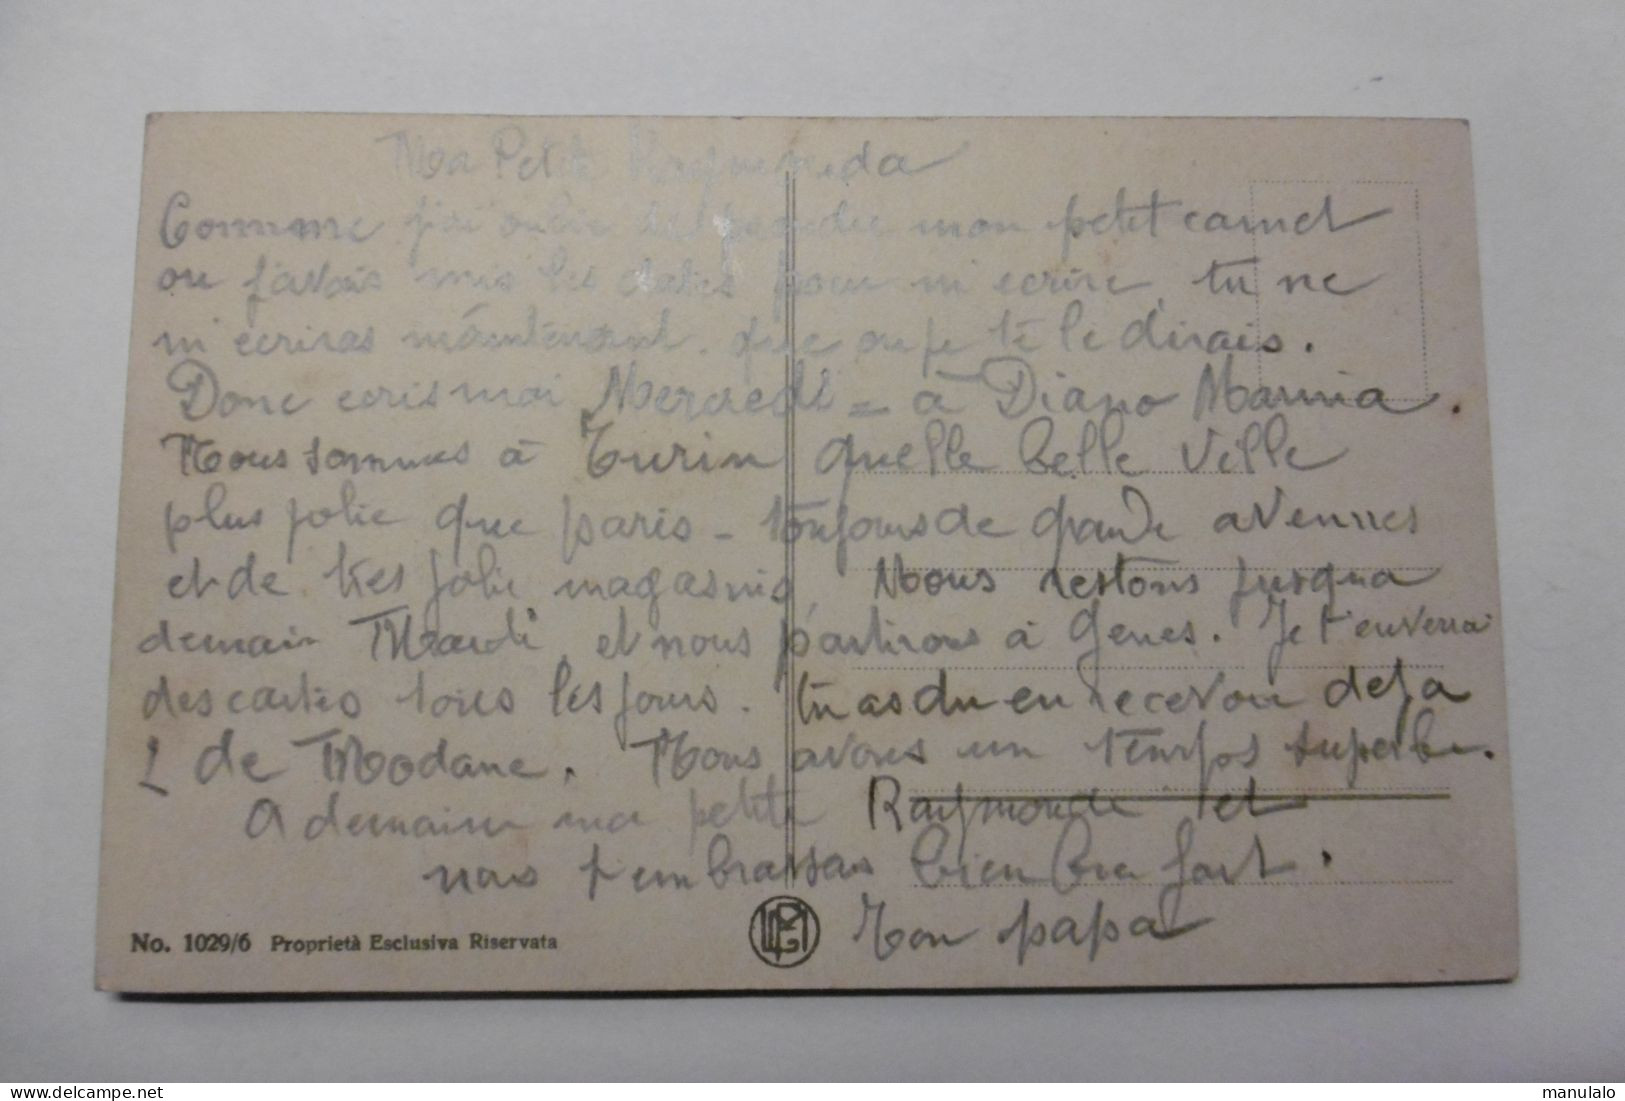 Ma Petite Raymonda
Comme j'ai oublie de prendre mon petit carnet
ou j'avais mis les dates pour m'ecrire, tu ne
m'ecriras maintenant que ou je te le dirais.
Donc ecris moi Mercredi = à Diano Marina.
Nous sommes à Turin quelle belle ville
plus jolie que paris - toujours de grande avenues
et de tres jolie magasins, Nous restons jusqua
demain Mardi et nous partirons à Genes. Je t'enverrai
des cartes tous les jours. tu as du en recevoir deja
2 de Modane. Nous avons un temps superbe.
A demain ma petite Raymonde et
nous t'embrassons bien fort.
Ton papa
No. 1029/6 Proprietà Esclusiva Riservata
manulalo